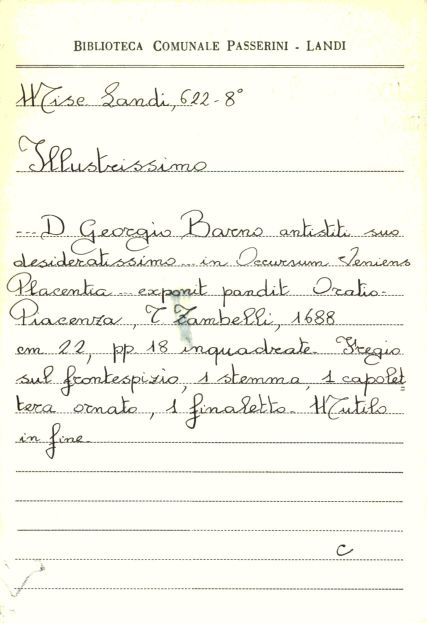 BIBLIOTECA COMUNALE PASSERINI - LANDI
Misc Landi, 622-8°
Illustrissimo
... D Georgio Barno antistiti suo
desideratissimo ... in Occursum Veniens
Placentia ... exponit pandit Oratio -
Piacenza, T Zambelli, 1688
cm 22, pp 18 inquadrate. Fregio
sul frontespizio, 1 stemma, 1 capolet
tera ornato, 1 finaletto. Mutilo
in fine.
C